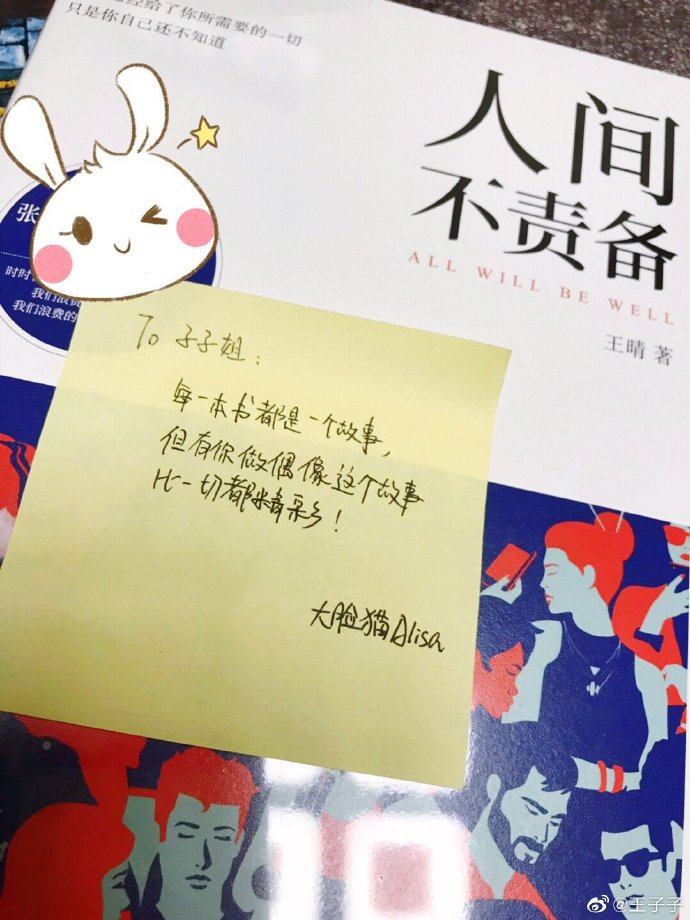 经给了你所需要的一切
只是你自己还不知道
人间
不责备
ALL WILL BE WELL
王晴 著
张
时时
我们浪费
我们浪费的
To 子子姐：
每一本书都是一个故事，
但有你做偶像这个故事
比一切都精彩！
大脸猫Alisa
@王子子